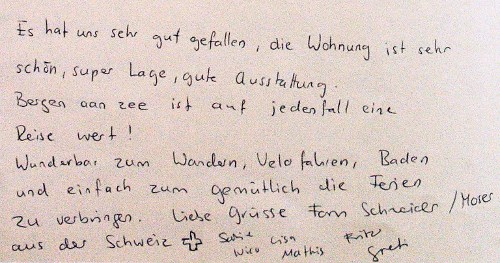 Es hat uns sehr gut gefallen, die Wohnung ist sehr
schön, super Lage, gute Ausstattung.
Bergen aan zee ist auf jedenfall eine
Reise wert!
Wunderbar zum Wandern, Velo fahren, Baden
und einfach zum gemütlich die Ferien
zu verbringen. Liebe Grüsse Fam /Moser
aus der Schweiz Lisa
Nico Mathis